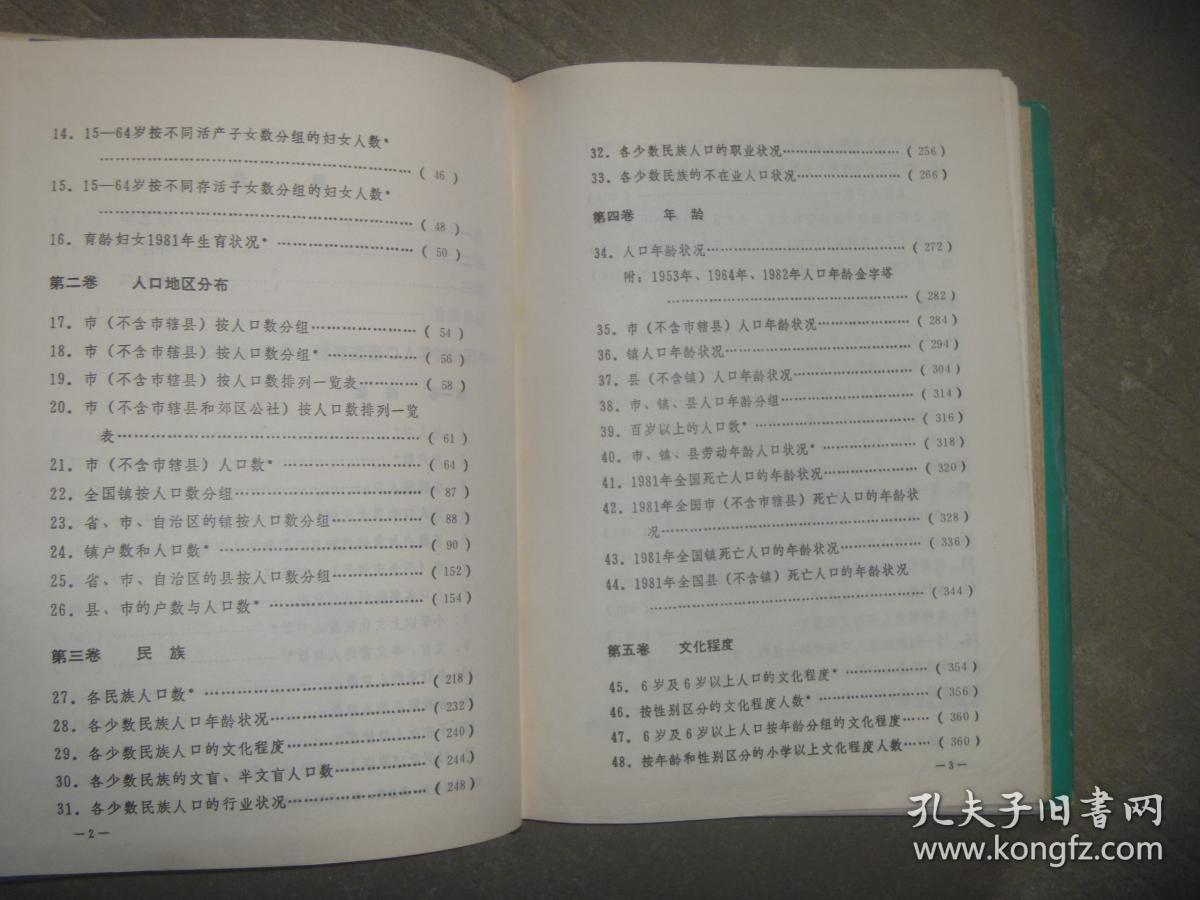 14. 15—64岁按不同活产子女数分组的妇女人数*
……………………………………………( 46 )
15. 15—64岁按不同存活子女数分组的妇女人数*
……………………………………………( 48 )
16. 育龄妇女1981年生育状况* …………………( 50 )
第二卷 人口地区分布
17. 市（不含市辖县）按人口数分组……………( 54 )
18. 市（不含市辖县）按人口数分组* ……………( 56 )
19. 市（不含市辖县）按人口数排列一览表………( 58 )
20. 市（不含市辖县和郊区公社）按人口数排列一览
表…………………………………………( 61 )
21. 市（不含市辖县）人口数* …………………( 64 )
22. 全国镇按人口数分组…………………………( 87 )
23. 省、市、自治区的镇按人口数分组……………( 88 )
24. 镇户数和人口数* ……………………………( 90 )
25. 省、市、自治区的县按人口数分组……………(152)
26. 县、市的户数与人口数* ……………………(154)
第三卷 民 族
27. 各民族人口数* ………………………………(218)
28. 各少数民族人口年龄状况……………………(232)
29. 各少数民族人口的文化程度…………………(240)
30. 各少数民族的文盲、半文盲人口数……………(244)
31. 各少数民族人口的行业状况…………………(248)
—2—
32. 各少数民族人口的职业状况…………………( 256)
33. 各少数民族的不在业人口状况………………( 266)
第四卷 年 龄
34. 人口年龄状况…………………………………(272)
附：1953年、1964年、1982年人口年龄金字塔
…………………………………………(282)
35. 市（不含市辖县）人口年龄状况………………(284)
36. 镇人口年龄状况………………………………(294)
37. 县（不含镇）人口年龄状况……………………(304)
38. 市、镇、县人口年龄分组………………………(314)
39. 百岁以上的人口数* …………………………(316)
40. 市、镇、县劳动年龄人口状况* ………………(318)
41. 1981年全国死亡人口的年龄状况……………(320)
42. 1981年全国市（不含市辖县）死亡人口的年龄状
况…………………………………………(328)
43. 1981年全国镇死亡人口的年龄状况…………(336)
44. 1981年全国县（不含镇）死亡人口的年龄状况
……………………………………………(344)
第五卷 文化程度
45. 6岁及6岁以上人口的文化程度* ……………(354)
46. 按性别区分的文化程度人数* ………………(356)
47. 6岁及6岁以上人口按年龄分组的文化程度……(360)
48. 按年龄和性别区分的小学以上文化程度人数……(360)
—3—
孔夫子旧书网
www.kongfz.com